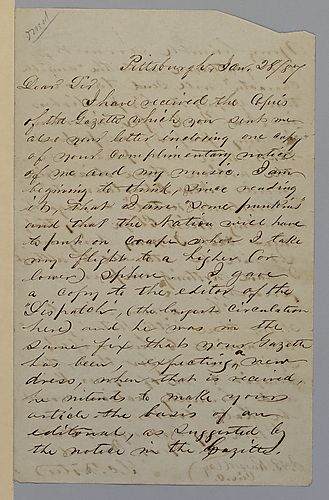 Pittsburgh, Jan. 28/57
Dear Sir
I have received the Copies
of the Gazette which you sent me
also your letter inclosing one copy
of your complimentary notice
of me and my music. I am
beginning to think, since reading
it, that I am "some punkins"
and that the Nation will have
to put on crape when I take
my flight to a higher (or
lower) sphere. I gave
a copy to the editor of the
"Dispatch", (the largest circulation
here) and he was in the
same fix that your Gazette
has been, expecting a new
dress, when that is received,
he intends to make your
article the basis of an
editorial, as suggested by
the notice in the Gazette,